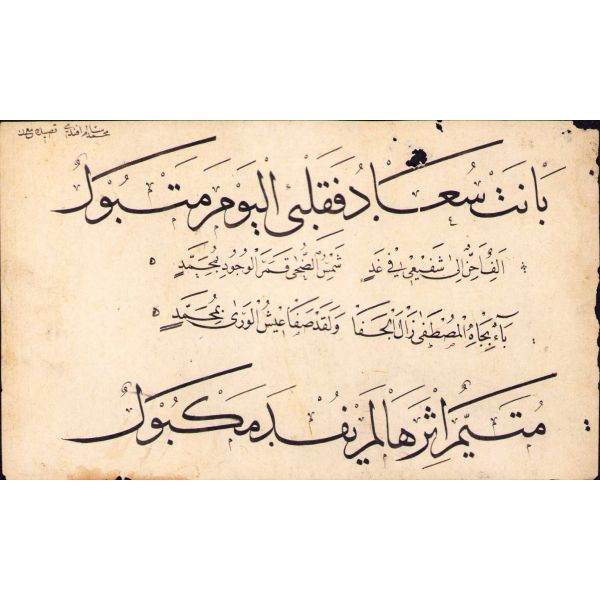 بَانَتْ سُعَادُ فَقَلْبِى الْيَوْمَ مَتْبُولُ
شَفِيعِى فِى غَدٍ شَمْسُ الضُّحَى قَمَرُ الْوُجُودِ مُحَمَّدٍ
بَاءٌ بِجَاهِ الْمُصْطَفَى زَالَ الْجَفَا وَلَقَدْ صَفَا عَيْشُ الْوَرَى بِمُحَمَّدٍ
مُتَيَّمٌ اِثْرَهَا لَمْ يُفْدَ مَكْبُولُ